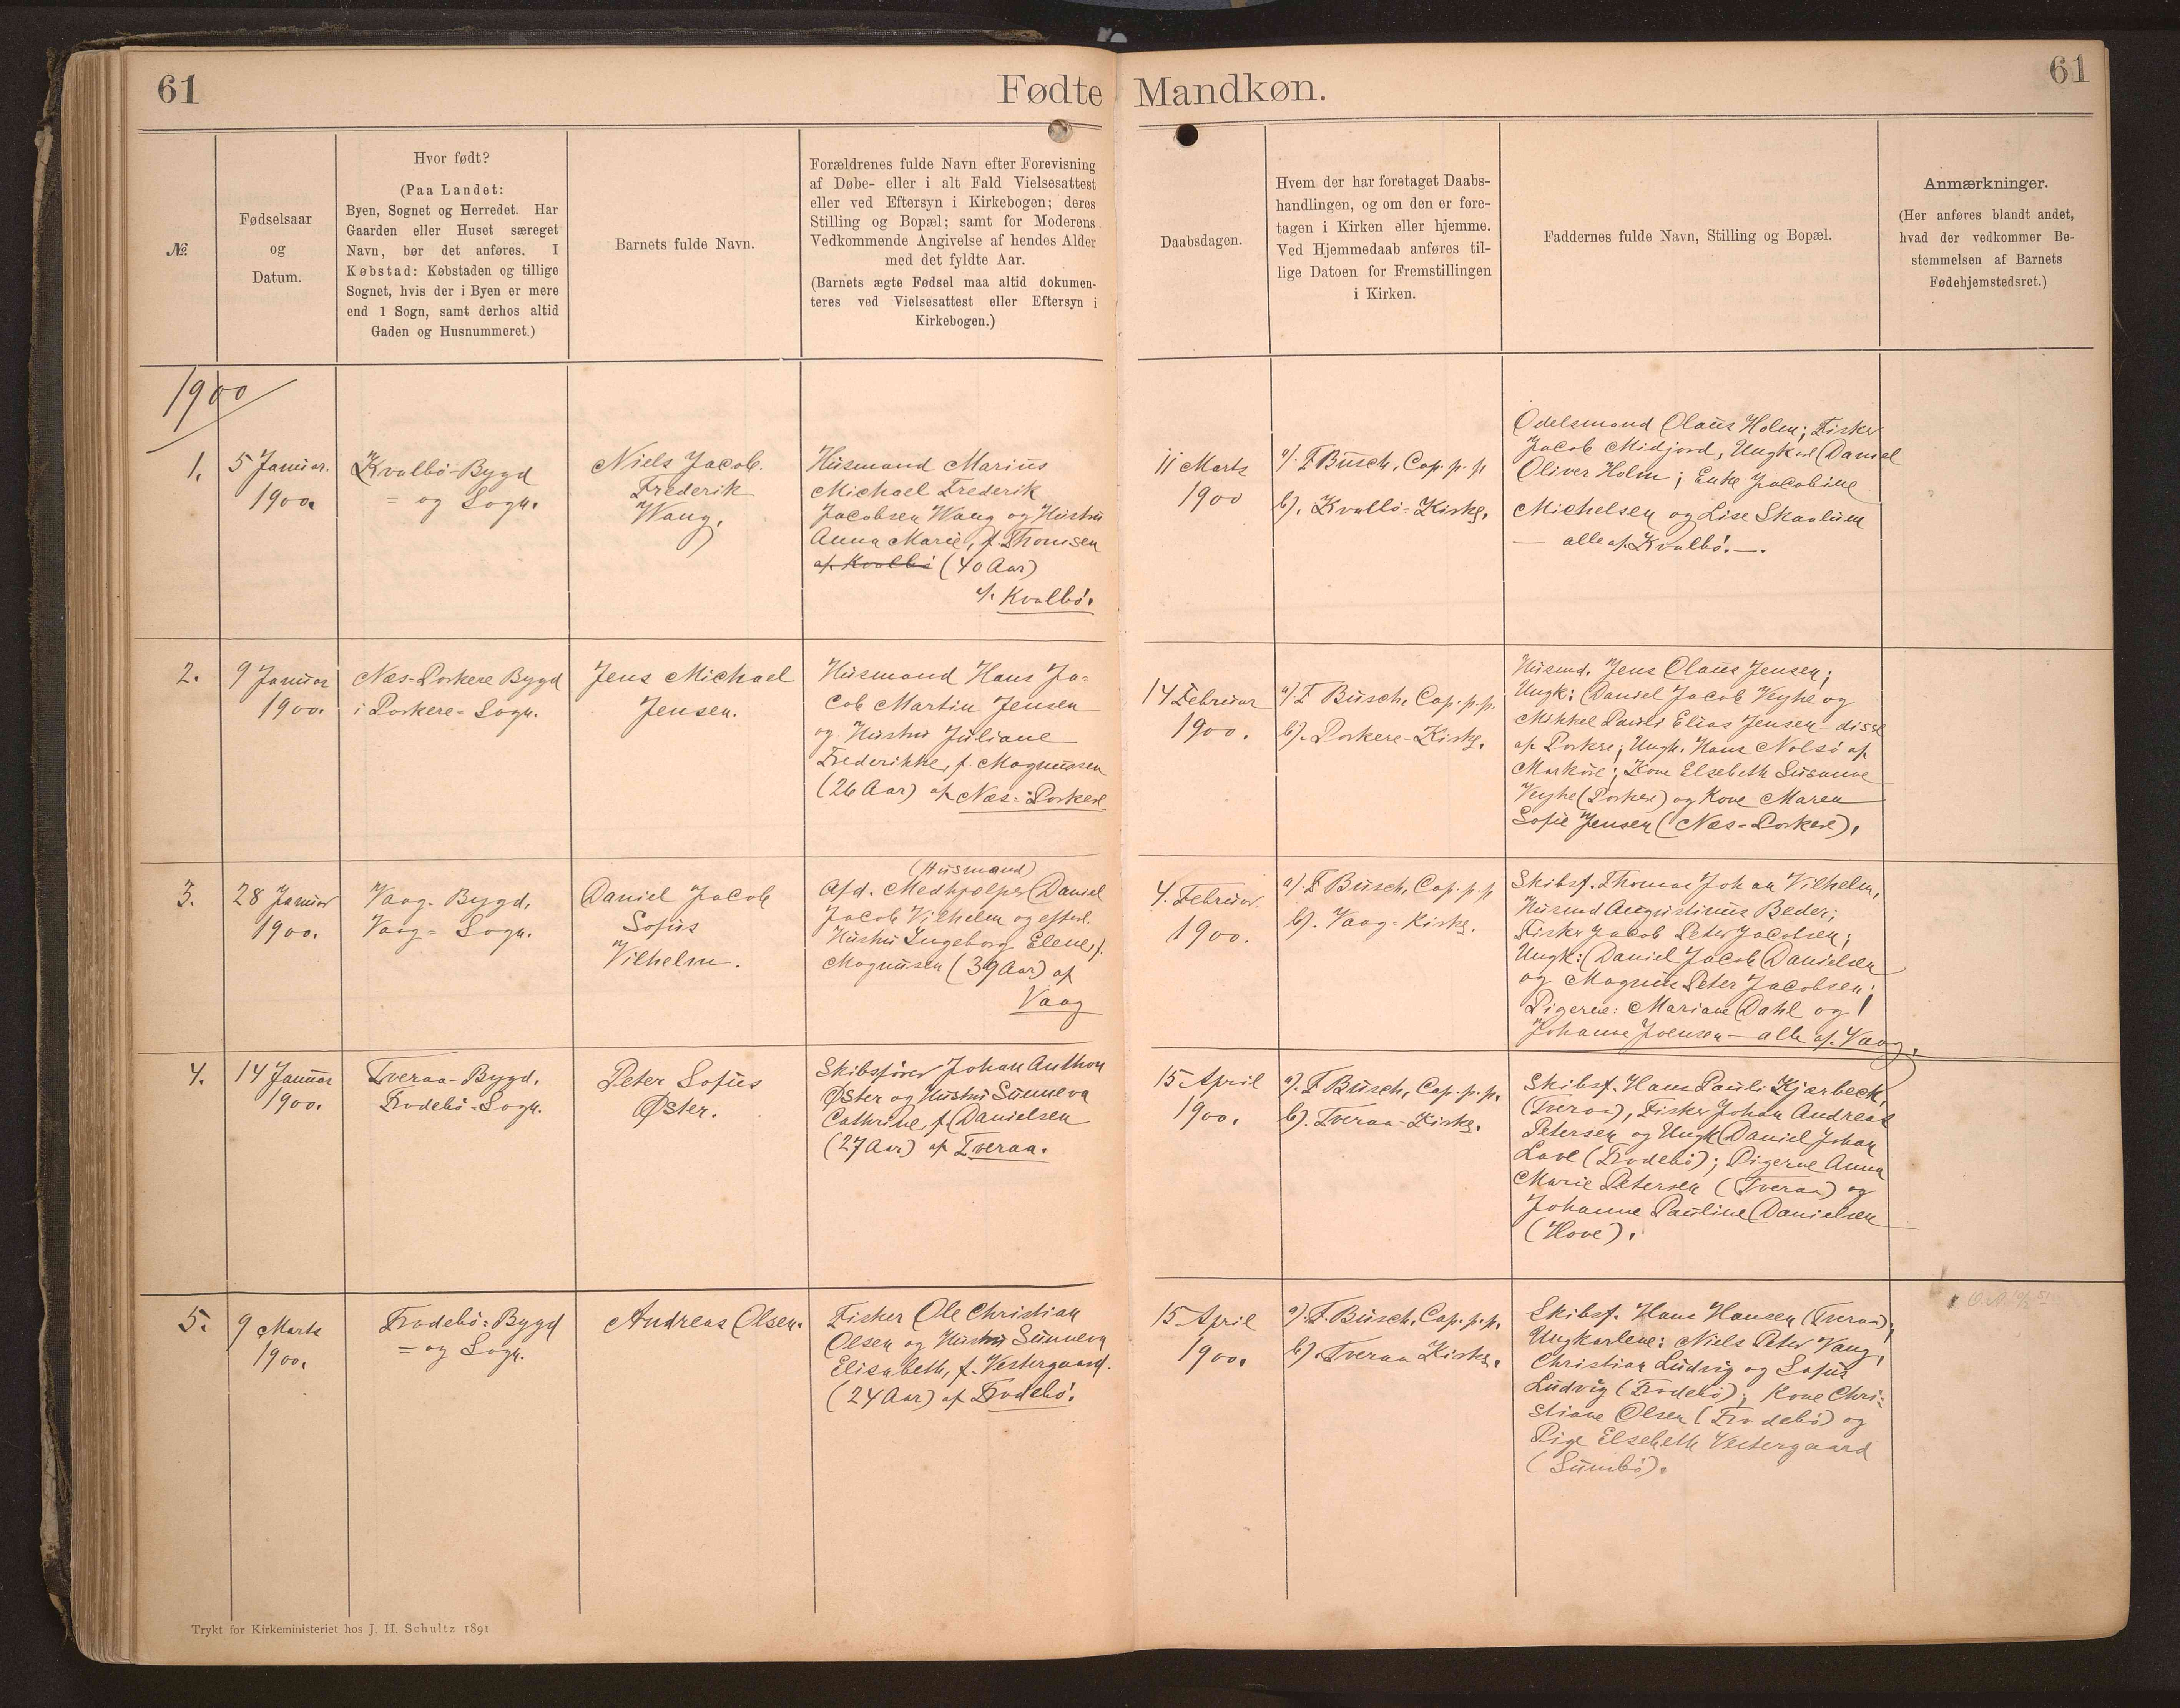 61
Fødte
Mandkøn.
61
№.
Fødselsaar
og
Datum.
Hvor født?
(Paa Landet:
Byen, Sognet og Herredet. Har
Gaarden eller Huset særeget
Navn, bør det anføres. I
Købstad: Købstaden og tillige
Sognet, hvis der i Byen er mere
end 1 Sogn, samt derhos altid
Gaden og Husnummeret.)
Barnets fulde Navn.
Forældrenes fulde Navn efter Forevisning
af Døbe- eller i alt Fald Vielsesattest
eller ved Eftersyn i Kirkebogen; deres
Stilling og Bopæl; samt for Moderens
Vedkommende Angivelse af hendes Alder
med det fyldte Aar.
(Barnets ægte Fødsel maa altid dokumen-
teres ved Vielsesattest eller Eftersyn i
Kirkebogen.)
Daabsdagen.
Hvem der har foretaget Daabs-
handlingen, og om den er fore-
tagen i Kirken eller hjemme.
Ved Hjemmedaab anføres til-
lige Datoen for Fremstillingen
i Kirken.
Faddernes fulde Navn, Stilling og Bopæl.
Anmærkninger.
(Her anføres blandt andet,
hvad der vedkommer Be-
stemmelsen af Barnets
Fødehjemstedsret.)
1900
1.
5 Januar.
1900.
Kvalbö-Bygd
= og Sogn.
Niels Jacob
Frederik
Wang.
Husmand Marius
Michael Frederik
Jacobsen Wang og Hustru
Anna Marie, f. Thomsen
af Kvalbö (40 Aar)
af Kvalbö.
11 Marts
1900
a). F Busch, Cap. p. p.
b). Kvalbö-Kirke.
Odelsmand Olaus Holm; Fisker
Jacob Midjord, Ungkarl Daniel
Oliver Holm; Enke Jacobine
Michelsen og Lise Skaalum
— alle af Kvalbö. —.
2.
9 Januar
1900.
Næs-Porkere Bygd
i Porkere-Sogn.
Jens Michael
Jensen.
Husmand Hans Ja-
cob Martin Jensen
og Hustru Juliane
Frederikke, f. Magnussen
(26 Aar) af Næs-Porkere.
14 Februar
1900.
a). F Busch, Cap. p. p.
b). Porkere-Kirke.
Husmd. Jens Olaus Jensen;
Ungk: Daniel Jacob Veyhe og
Mikkel Pauli Elias Jensen — disse
af Porkere; Ungk. Hans Nolsö af
Porkere; Kone Elsebeth Susanne
Veyhe (Porkere) og Kone Maren
Sofie Jensen (Næs-Porkere).
3.
28 Januar
1900.
Vaag-Bygd,
Vaag-Sogn.
Daniel Jacob
Sofus
Vilhelm.
(Husmand)
Afd. Medhjælper Daniel
Jacob Vilhelm og efterl.
Hustru Ingeborg Elene, f.
Magnusen (39 Aar) af
Vaag
4. Februar.
1900.
a). F Busch, Cap. p. p.
b). Vaag-Kirke.
Skibsf. Thomas Johan Vilhelm,
Husmd Augustinus Beder;
Fisker Jacob Peter Jacobsen;
Ungk: Daniel Jacob Danielsen
og Magnus Peter Jacobsen;
Pigerne: Mariane Dahl og
Johanne Joensen — alle af Vaag.
4.
14 Januar
1900.
Tveraa-Bygd,
Frodebö-Sogn.
Peter Sofus
Øster.
Skibsfører Johan Anthon
Øster og Hustru Sunneva
Cathrine, f. Danielsen
(27 Aar) af Tveraa.
15 April
1900.
a). F Busch, Cap. p. p.
b). Tveraa-Kirke.
Skibsf. Hans Pauli Kjærbeck
(Tveraa), Fisker Johan Andreas
Petersen og Ungk Daniel Johan
Lave (Frodebö); Pigerne Anna
Marie Petersen (Tveraa) og
Johanne Pauline Danielsen
(Hove).
5.
9 Marts
1900.
Frodebö-Bygd
= og Sogn.
Andreas Olsen.
Fisker Ole Christian
Olsen og Hustru Sunneva
Elisabeth, f. Vestergaard.
(24 Aar) af Frodebö.
15 April
1900.
a). F. Busch, Cap. p. p.
b). Tveraa Kirke.
Skibsf. Hans Hansen (Tveraa);
Ungkarlene: Niels Peter Vang,
Christian Ludvig og Sofus
Ludvig (Frodebö); Kone Chri-
stiane Olsen (Frodebö) og
Pige Elsebeth Vestergaard
(Sumbö).
Trykt for Kirkeministeriet hos J. H. Schultz 1891